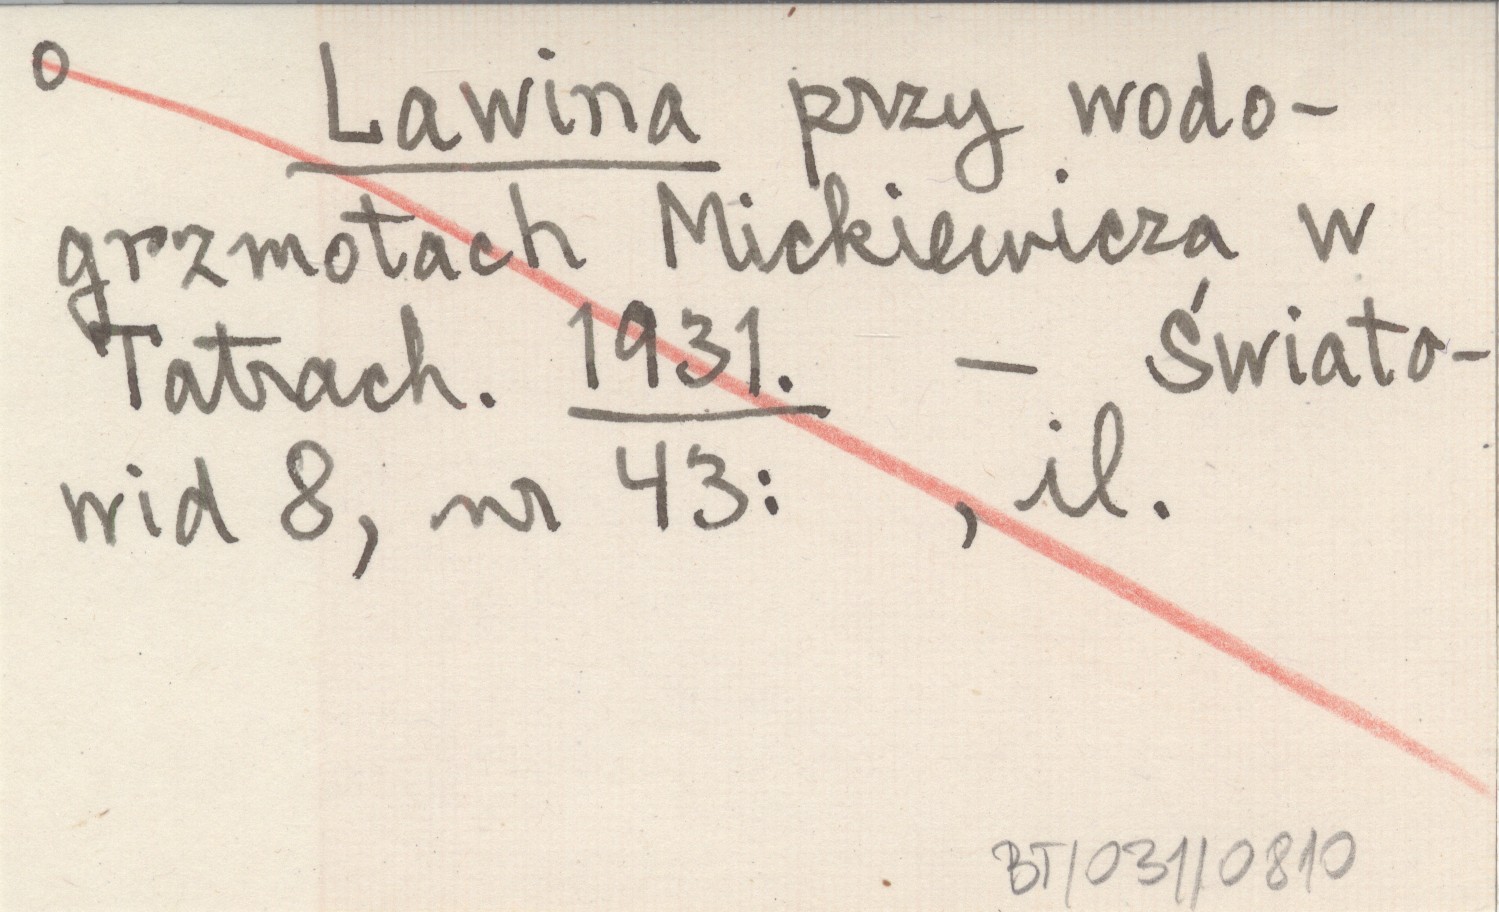 o Lawina przy wodo-
grzmotach Mickiewicza w
Tatrach. 1931. – Świato-
wid 8, nr 43: , il.
BT/031/0810